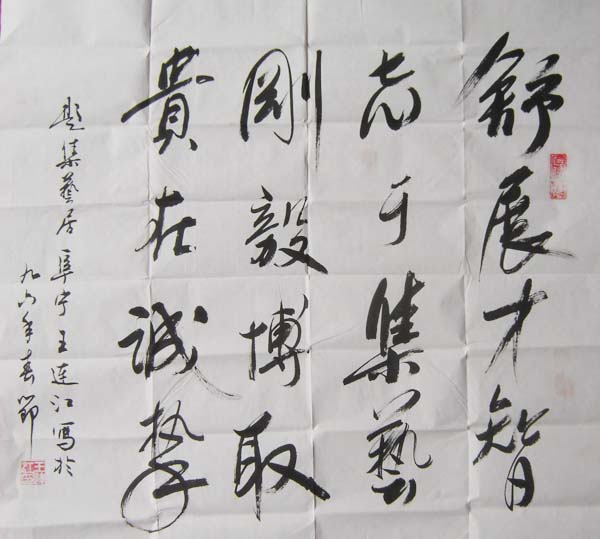 舒展才智
志于集藝
剛毅博取
貴在誠摯
題集藝居 阜宁王連江寫於
九六年春節